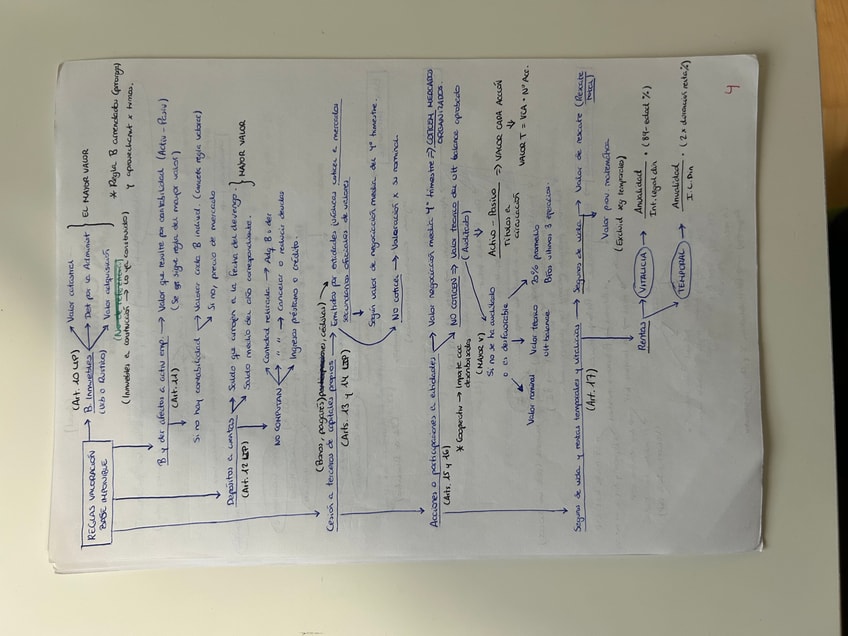 REGLAS VALORACIÓN
BASE IMPONIBLE
(Art. 10 LIP)
B. Inmuebles
(Urb o Rústico)
Valor catastral
Det por la Administ
Valor adquisición
EL MAYOR VALOR
(Inmuebles en construcción → lo ya construido)
* Regla B arrendados (prorroga)
y aprovechamt x turnos.
B y der afectos a activ emp → Valor que resulte por contabilidad (Activ - Pasiv)
(Art. 11)
(Se sigue regla del mayor valor)
Si no hay contabilidad → Valorar cada B individ.
Si no, precio de mercado
Depósitos a cuentas → Saldo que arrojen a la fecha del devengo.
(Art. 12 LIP)
Saldo medio del año correspondiente.
MAYOR VALOR
NO COMPUTAN
Cantidad retirada → Adq. B i der
" " → Cancelar o reducir deudas
Ingreso préstamo o crédito.
(Bonos, pagarés, cédulas)
Cesión a terceros de capitales propios → Emitidos por entidades jurídicas coticen en mercados
(Arts. 13 y 14 LIP)
secundarios oficiales de valores
Según valor de negociación media del 4º trimestre.
NO COTICE → Valoración x su nominal.
Acciones o participaciones a entidades → Valor negociación media 4º trimestre ⇒ COTICEN MERCADOS
ORGANIZADOS.
(Arts. 15 y 16)
NO COTICEN ⇒ Valor teórico del ult balance aprobado
(Auditado)
* Cooperativ → Importe cac
desembolsadas
(MAYOR V)
Si no se ha auditado
o es desfavorable
Activo - Pasivo ⇒ VALOR CADA ACCIÓN
Títulos en
circulación
VALOR T = VCA · Nº Acc.
Valor nominal
Valor teórico
ult balance
20% promedio
Bfos últimos 3 ejercicios.
Seguros de vida y rentas temporales y vitalicias → Seguros de vida → Valor de rescate (Rescate
total)
(Art. 17)
Valor prov matemática
Rentas → VITALICIA → Anualidad · (89 - edad %)
Int. legal din
TEMPORAL → Anualidad · (2 x duración resta, %)
I. L. Din
4